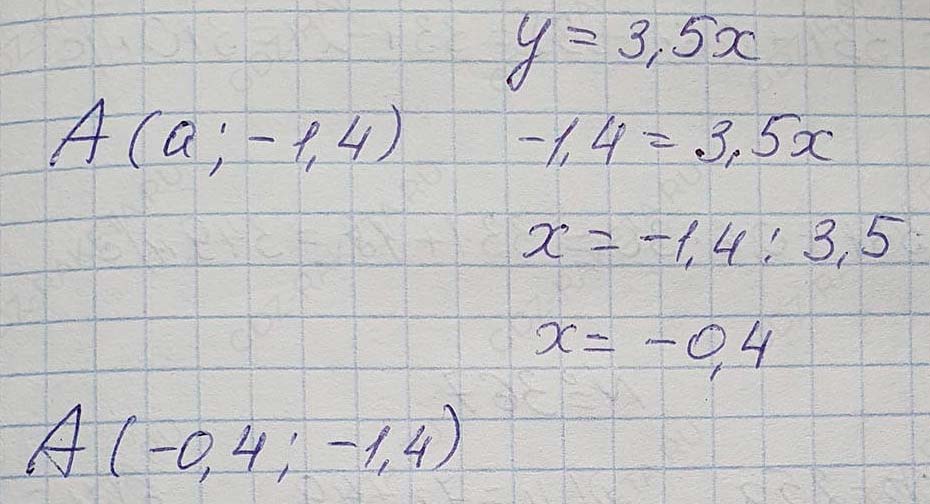 y = 3,5x
A (a; -1,4) -1,4 = 3,5x
x = -1,4 : 3,5
x = -0,4
A (-0,4; -1,4)